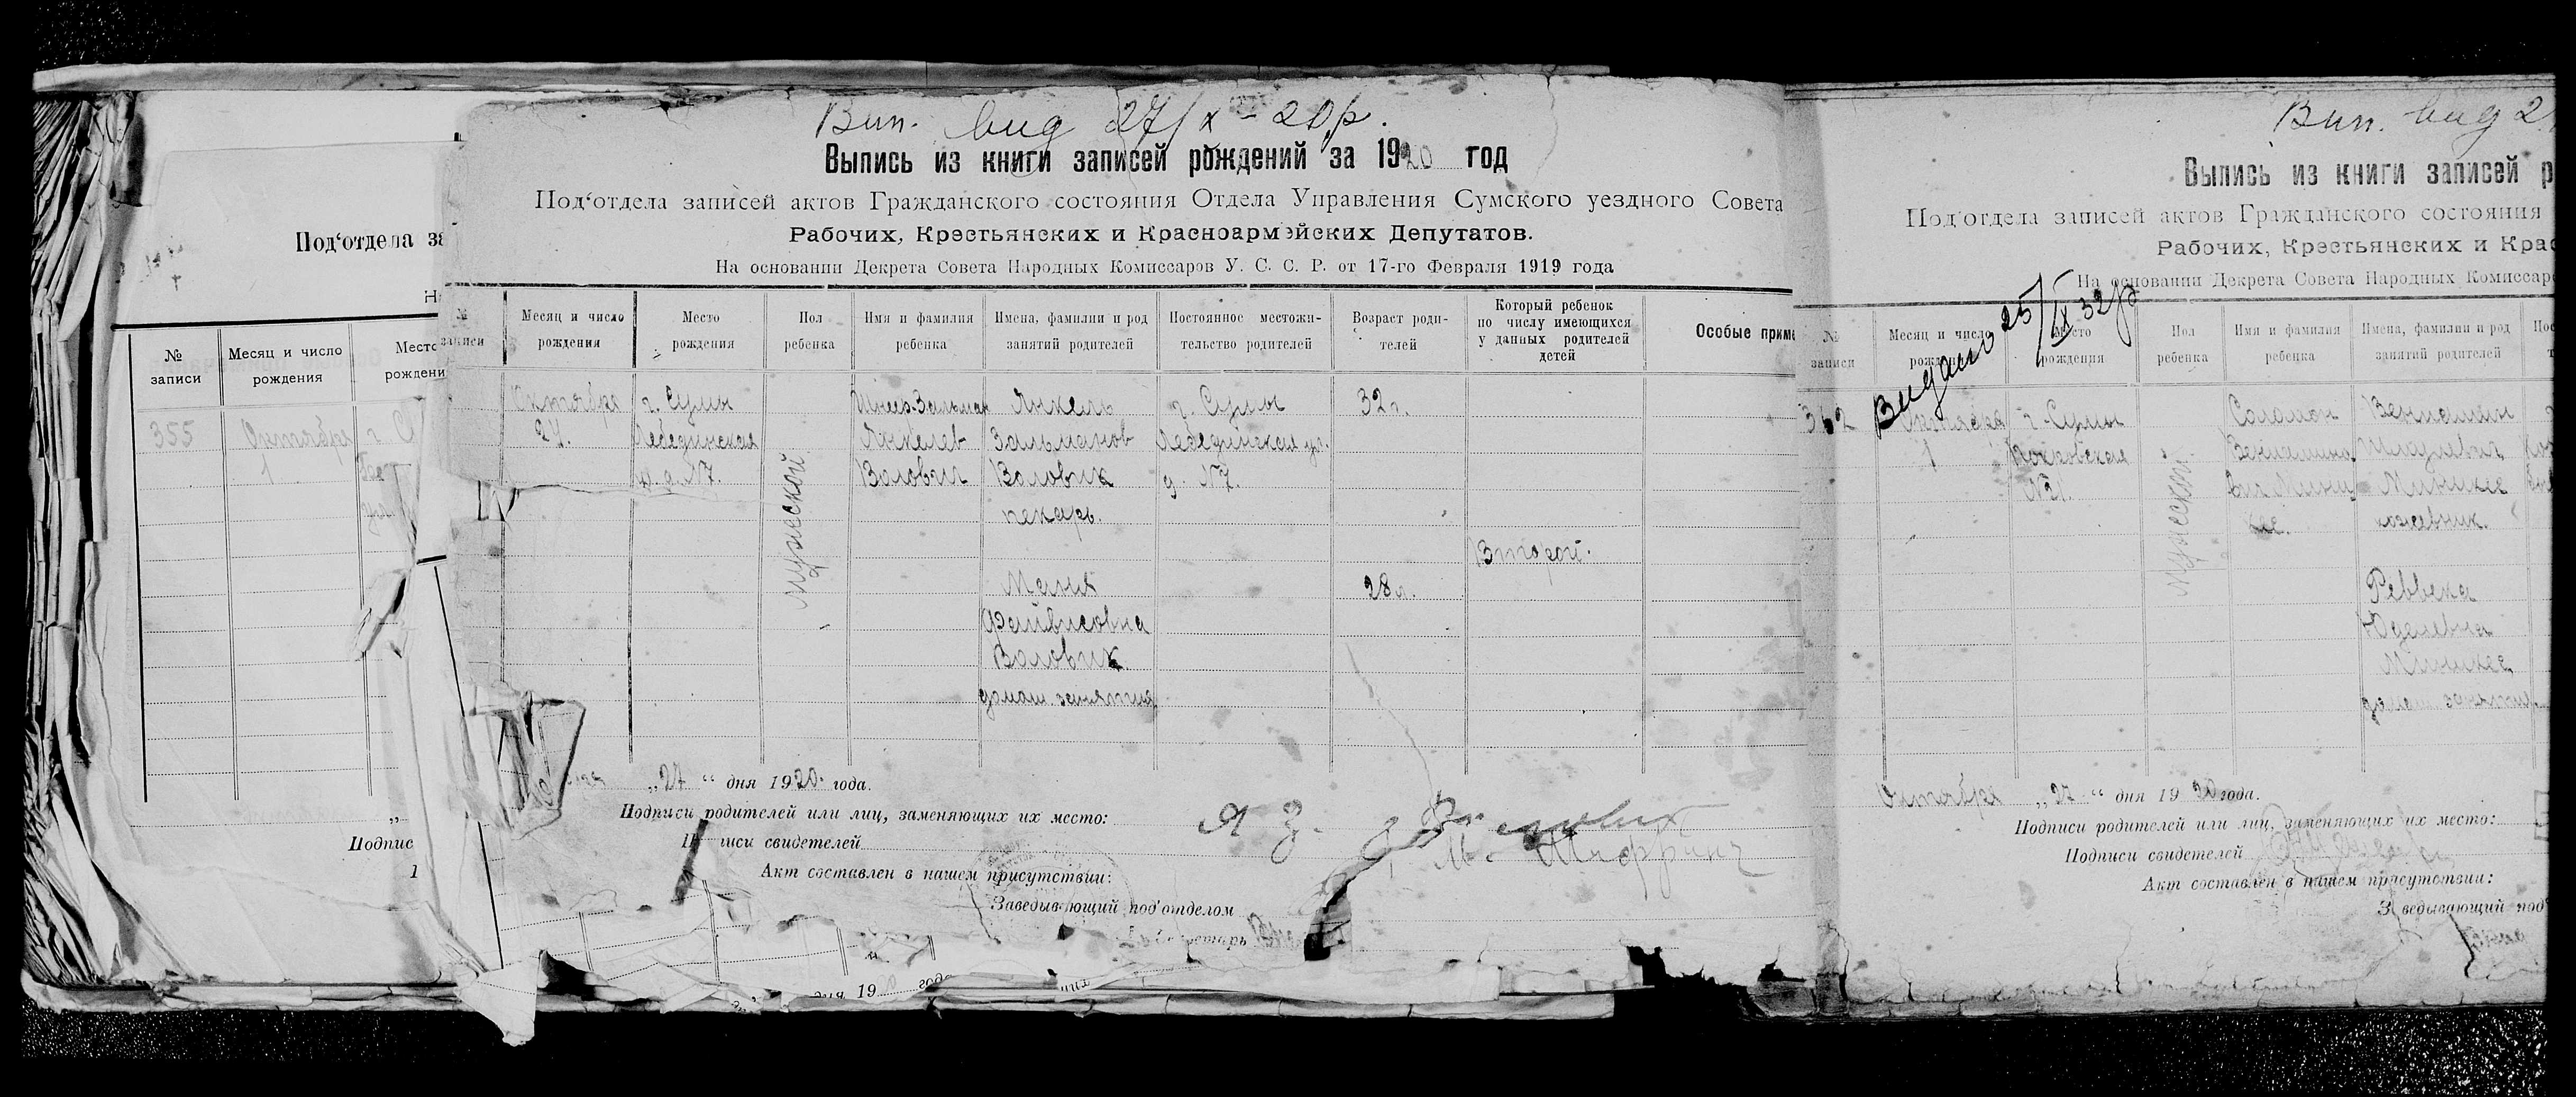 Под‘отдела за
Н
№ записи
Месяц и число рождения
Место рождени
355
Октября
1
г. С
„
Подпис
1
Вип. вид 27/X - 20р.
Выпись из книги записей рождений за 1920 год
Под‘отдела записей актов Гражданского состояния Отдела Управления Сумского уездного Совета
Рабочих, Крестьянских и Красноармейских Депутатов.
На основании Декрета Совета Народных Комиссаров У. С. С. Р. от 17-го Февраля 1919 года
№ записи
Месяц и число рождения
Место рождения
Пол ребенка
Имя и фамилия ребенка
Имена, фамилии и род занятий родителей
Постоянное местожи-
тельство родителей
Возраст роди-
телей
Который ребенок
по числу имеющихся
у данных родителей
детей
Особые приме
Октября
г. Сумы
Лебединская
д. №7.
мужеской
Шнеер-Зальман
Янкелев
Воловик
Янкель
Зальманов
Воловик
пекарь.
г. Сумы
Лебединская ул.
д. №7.
32 г.
Второй.
Маня
Файвисовна
Воловик
домаш. занятия
28 л.
„27“ дня 1920 года.
Подписи родителей или лиц, заменяющих их место:
Я З. Воловик
писи свидетелей
Акт составлен в нашем присутствии:
Заведывающий под‘отделом
дня 19 года
Вип. вид 2
Выпись из книги записей р
Под‘отдела записей актов Гражданского состояния
Рабочих, Крестьянских и Крас
На основании Декрета Совета Народных Комиссаро
Видано 25/IX 32 р
№ записи
Месяц и число рождения
Место рождения
Пол ребенка
Имя и фамилия ребенка
Имена, фамилии и род занятий родителей
Пос
362
Октября
1
г. Сумы
Покровская
№21.
мужеской
Соломон
Вениамин
кожевник.
Реввека
Юделевна
домаш. занятия
Октября „27“ дня 1920 года.
Подписи родителей или лиц, заменяющих их место:
Подписи свидетелей
Акт составлен в нашем присутствии:
З ведывающий под‘